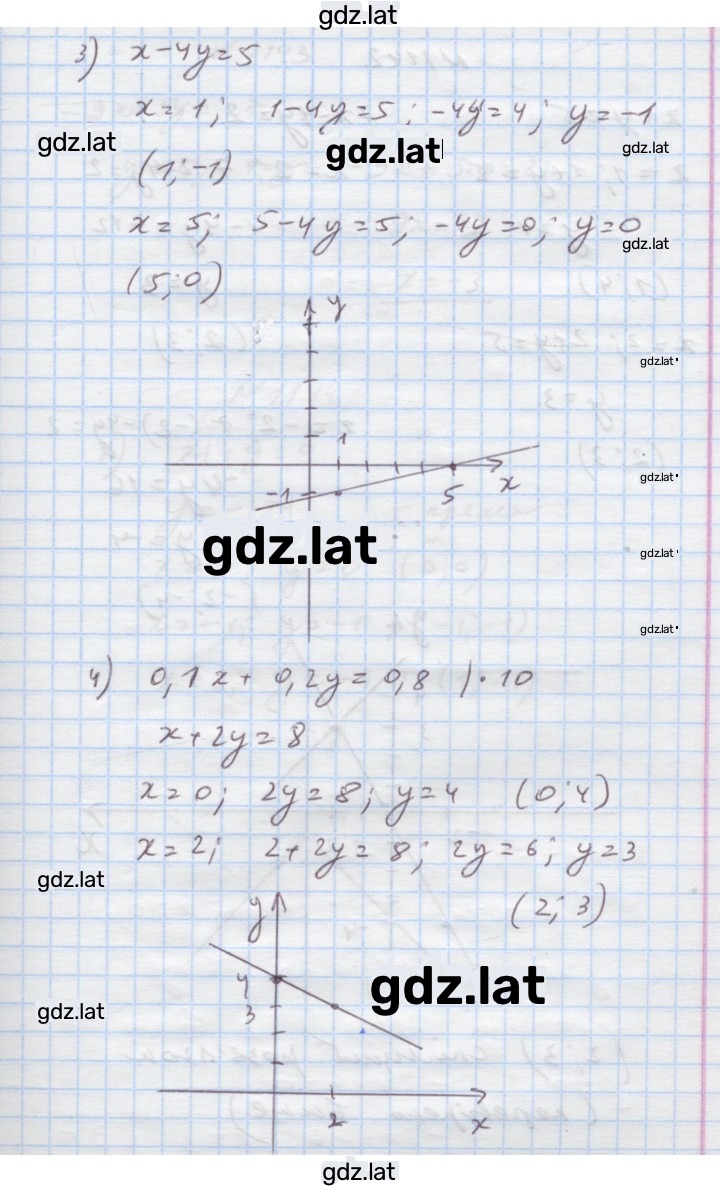 gdz.lat
3) x-4y=5
x=1; 1-4y=5; -4y=4; y=-1
gdz.lat gdz.lat gdz.lat
(1;-1)
x=5; 5-4y=5; -4y=0; y=0
gdz.lat
(5;0)
y
gdz.lat
1
x
gdz.lat
-1 5
gdz.lat
gdz.lat
gdz.lat
4) 0,1x+0,2y=0,8 |·10
x+2y=8
x=0; 2y=8; y=4 (0;4)
x=2; 2+2y=8; 2y=6; y=3
gdz.lat
(2;3)
y
4
gdz.lat
3
gdz.lat
2 x
gdz.lat